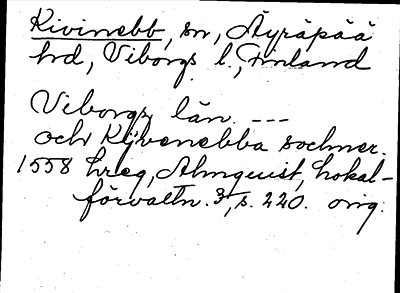 Kivinebb, sn, Äyräpää
hd, Viborgs l., Finland
Viborgs län. ---
och Kÿvenebba sochner.
1558 hreg, Almquist, Lokal-
förvaltn. 3, s. 220. orig.